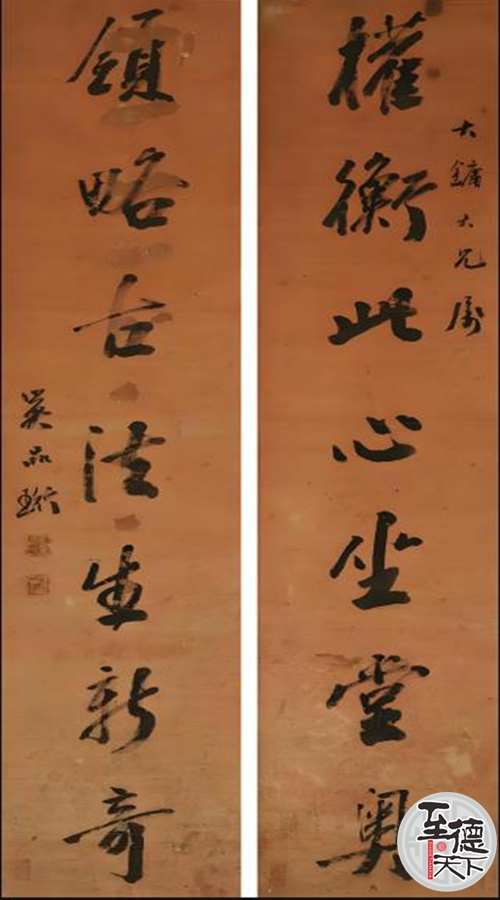 大鏞大兄属
權衡此心坐堂奥
領略古法生新奇
吴品珩
至德天下